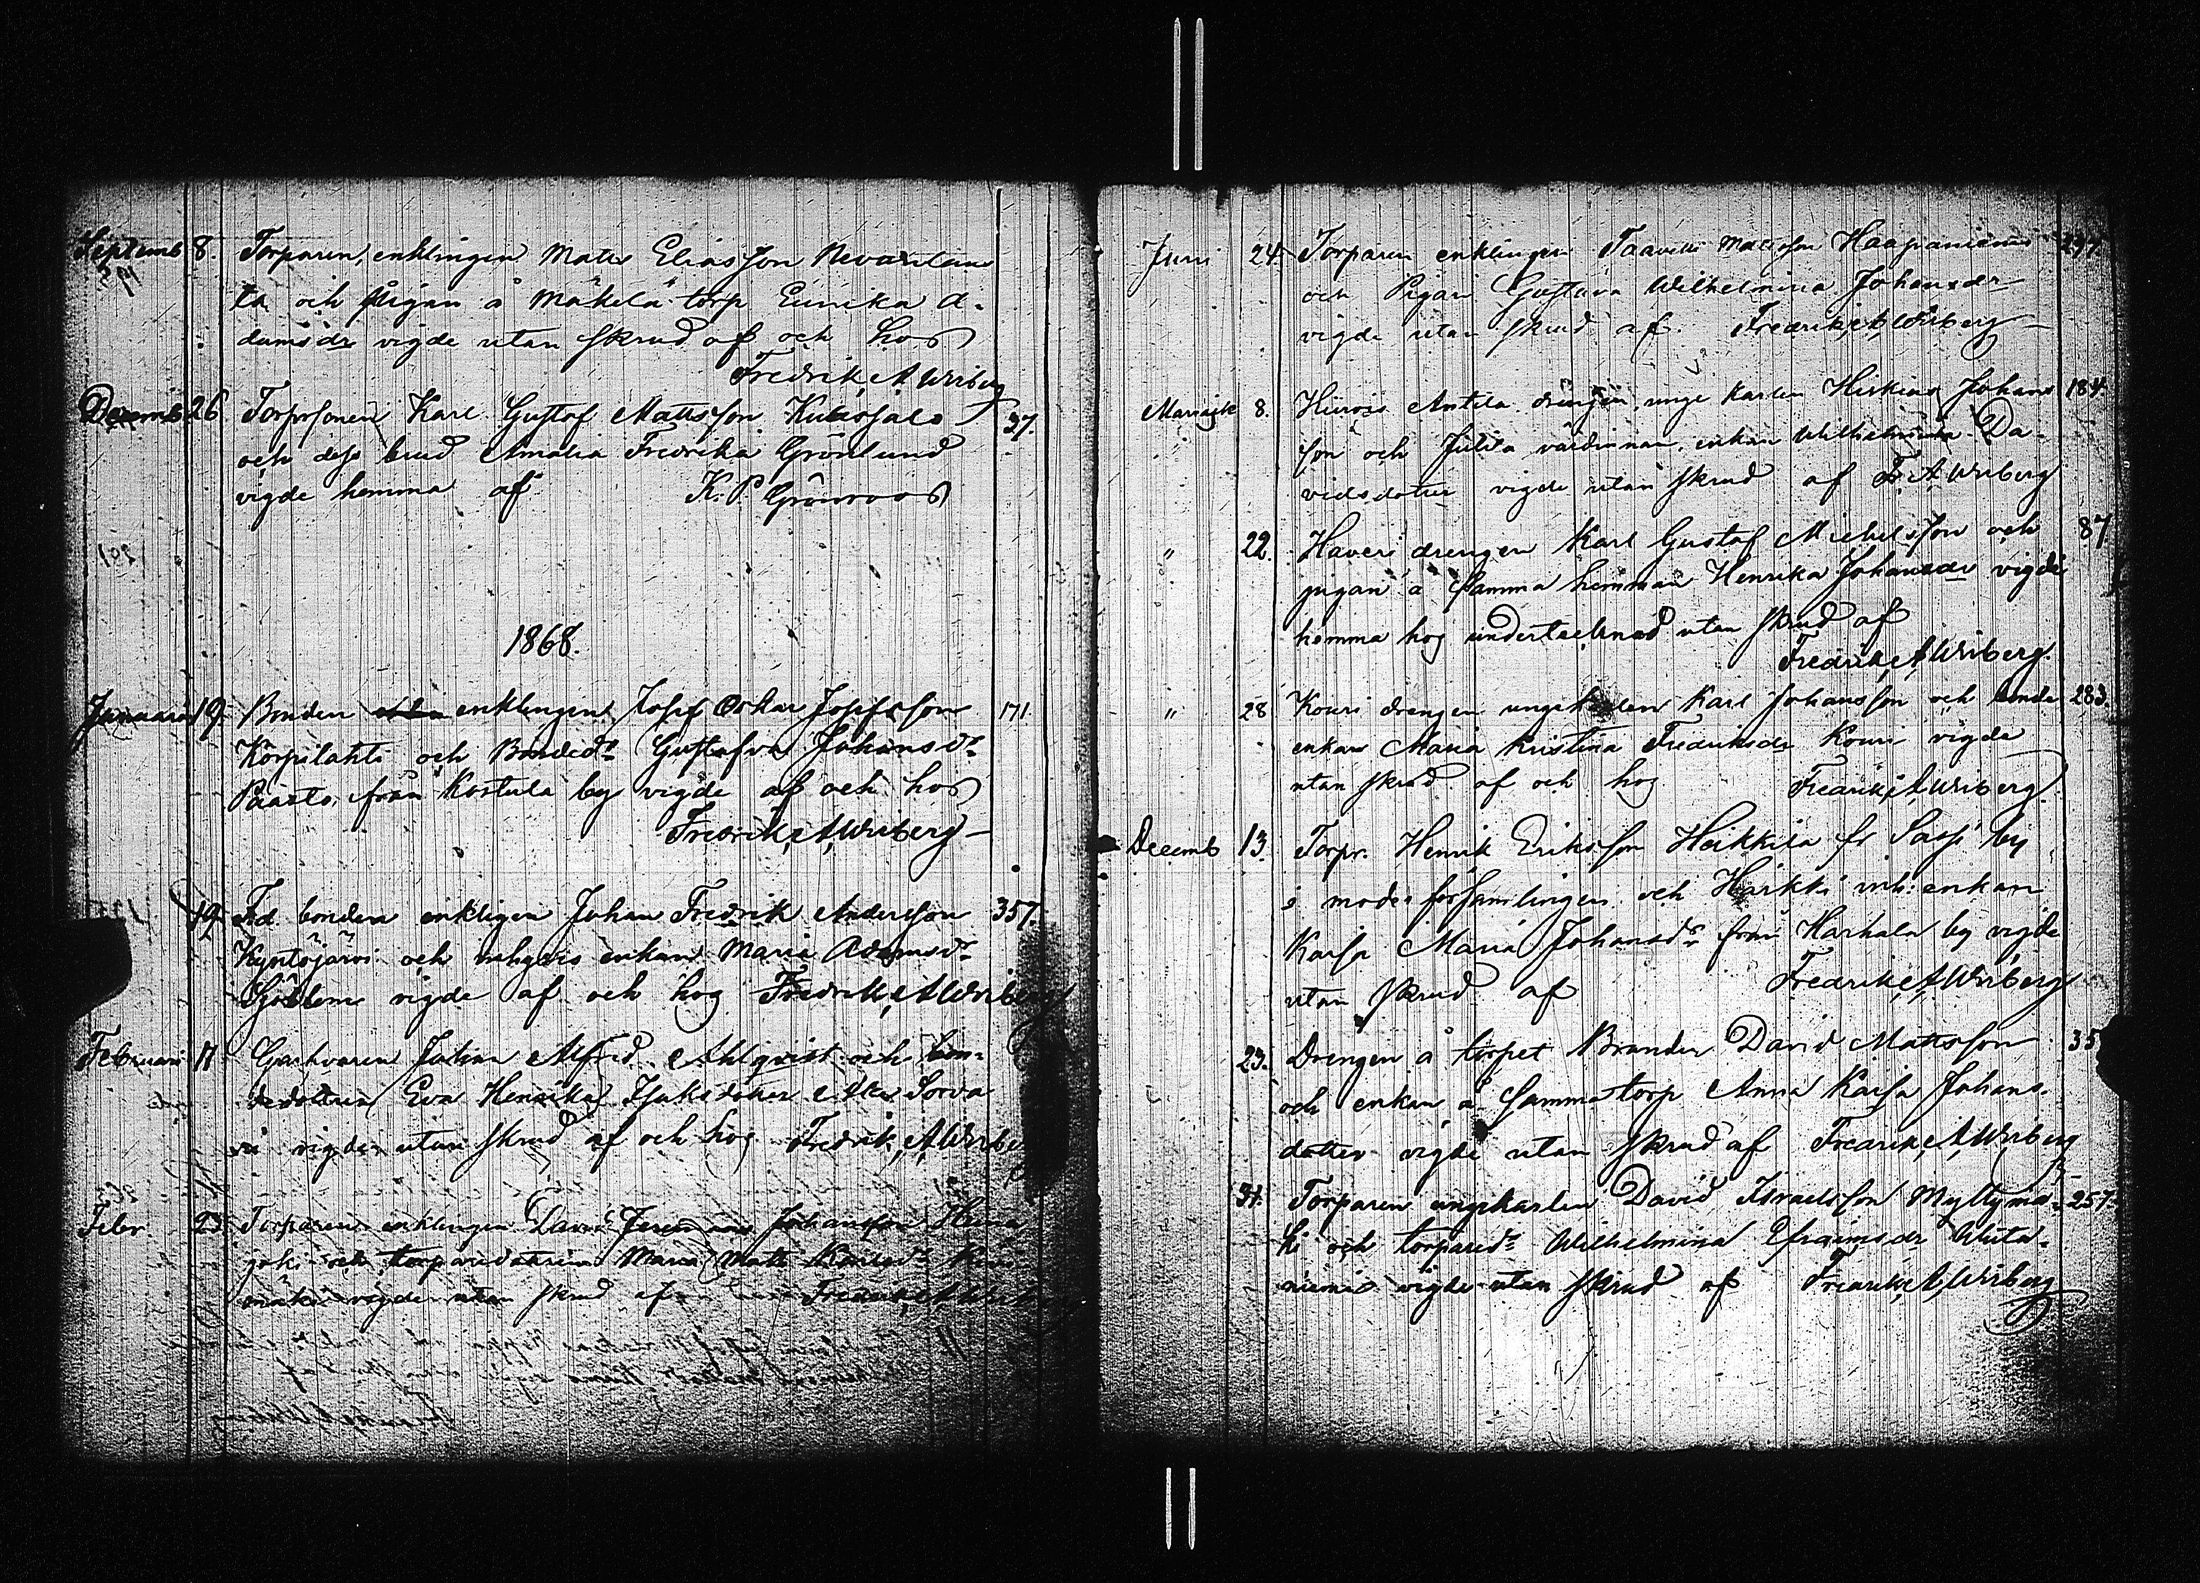 Septemb 8. Torparen, enklingen Matts Eliasson Nevaranlam
ta och pigan å Mäkelä torp Eunika A-
damsdr vigde utan skrud af och hos
Fredrik A Wriberg
Decemb. 26 Torprsonen Karl Gustaf Mattsson 37.
och dess brud Amalia Fredrika Grönlund
vigde hemma af K. P. Grönroos
1868.
Januari 19. Bonden enklingen Josef Oskar Josefsson 171
Korpilahti och Bonded:r Gustafva Johansd:r
Paasto från Kostula by vigde af och hos
Fredrik A Wriberg
19. F.d. bonden enklingen Johan Fredrik Andersson 357.
Kyntöjärvi och enkan Maria Adamsd:r
vigde af och hos Fredrik A Wriberg
Februari 11 Garfvaren Johan Alfred Ahlqvist och bon-
dedottren Eva Henrika Isaksdotter Sorva
ri vigde utan skrud af och hos Fredrik A Wriberg
Febr. 23. Torparen enklingen David Johansson Heina
joki och torparedottren Maria
mäki vigde utan skrud af Fredrik A Wriberg
Juni 24. Torparen enklingen Taavetti Mattsson Haapaniemi 297
och Pigan Gustava Wilhelmina Johansdr
vigde utan skrud af Fredrik A Wriberg
8. Antila drengen, unge karlen Hiskias Johans 184.
son och Julila värdinnan, enkan Wilhelmina Da-
vidsdotter vigde utan skrud af F. A Wriberg
" 22. Haveri drengen Karl Gustaf Michelsson och 87
pigan å samma hemman Henrika Johansdr vigde
hemma hos undertecknad utan skrud af
Fredrik A Wriberg.
" 28 Kouri drengen ungekarlen Karl Johansson och bonde 283.
enkan Maria Kristina Fredriksdr Kouri vigde
utan skrud af och hos Fredrik A Wriberg
Decemb 13. Torpr. Henrik Eriksson Heikkilä fr Sasi by
i moderförsamlingen och Harkki inh: enkan
Kaisa Maria Johansd:r från Harhala by vigde
utan skrud af Fredrik A Wriberg
23. Drengen å torpet Brander David Mattsson 35
och enkan å samma torp Anna Kaisa Johans-
dotter vigde utan skrud af Fredrik A Wriberg
31. Torparen ungekarlen David Israelsson Myllymä- 257.
ki och torpared:r Wilhelmina Efraimsdr
niemi vigde utan skrud af Fredrik A Wriberg